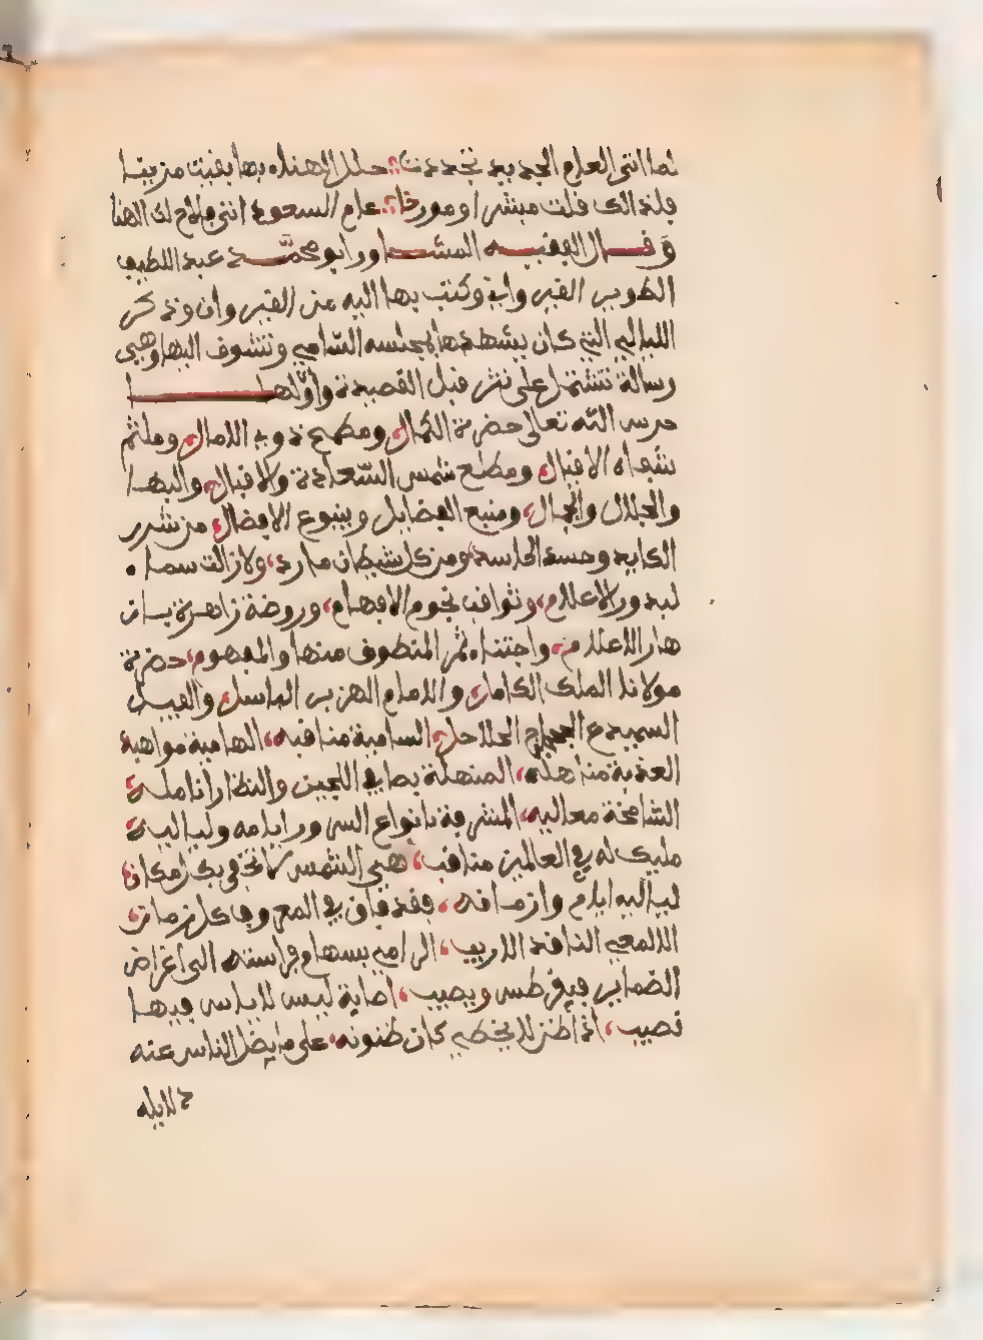 لما اتى العام الجديد تجددت حلل الهناء بها بقيت مزينا
فلذالك قلت مبشرا ومورخا عام السعود اتى فلاح لك الهنا
وقال الفقيه المشاور ابو محمد عبد اللطيف
الطوير القيرواني وكتب بها اليه من القيروان وذكر
الليالي التي كان يشهدها بمجلسه السامي وتشوف اليها وهي
رسالة تشتمل على نثر قبل القصيدة واولها
حرس الله تعالى حضرة الكمال، ومطمح ذوي الامال، وملثم
شفاه الاقبال، ومطلع شمس السعادة والاقبال، والبها
والجلال والجمال، ومنبع الفضايل وينبوع الافضال، من شرر
الكايد وحسد الحاسد ومن كل شيطان مارد، ولا زالت سما
لبدور الاعلام، وثواقب نجوم الافهام، وروضة زاهرة
هار الاعلام، واجتناء ثمر المنطوف منها والمفهوم، حضرة
مولانا الملك الكامل، والامام الهزبر الباسل، والقيل
السميدع الججاج الحلاحل، السامية مناقبه، الهامية مواهبه
العذبة مناهله، المنهلة بصايب اللجين والنظار انامله
الشامخة معاليه، المشرقة بانواع السرور ايامه ولياليه
مليك له في العالمين مناقب، هي الشمس لا تخفى بكل مكان
لياليه ايام وازمانه، فقد فاق في المعروف كل زمان،
الالمعي الناقد الاريب، الرامي بسهام فراسته الى اغراض
الضماير فيقرطس ويصيب، اصابة ليس لاياس فيها
نصيب، اذا ظن لا يخطي كان ظنونه، على ما يضل الناس عنه
دلايله